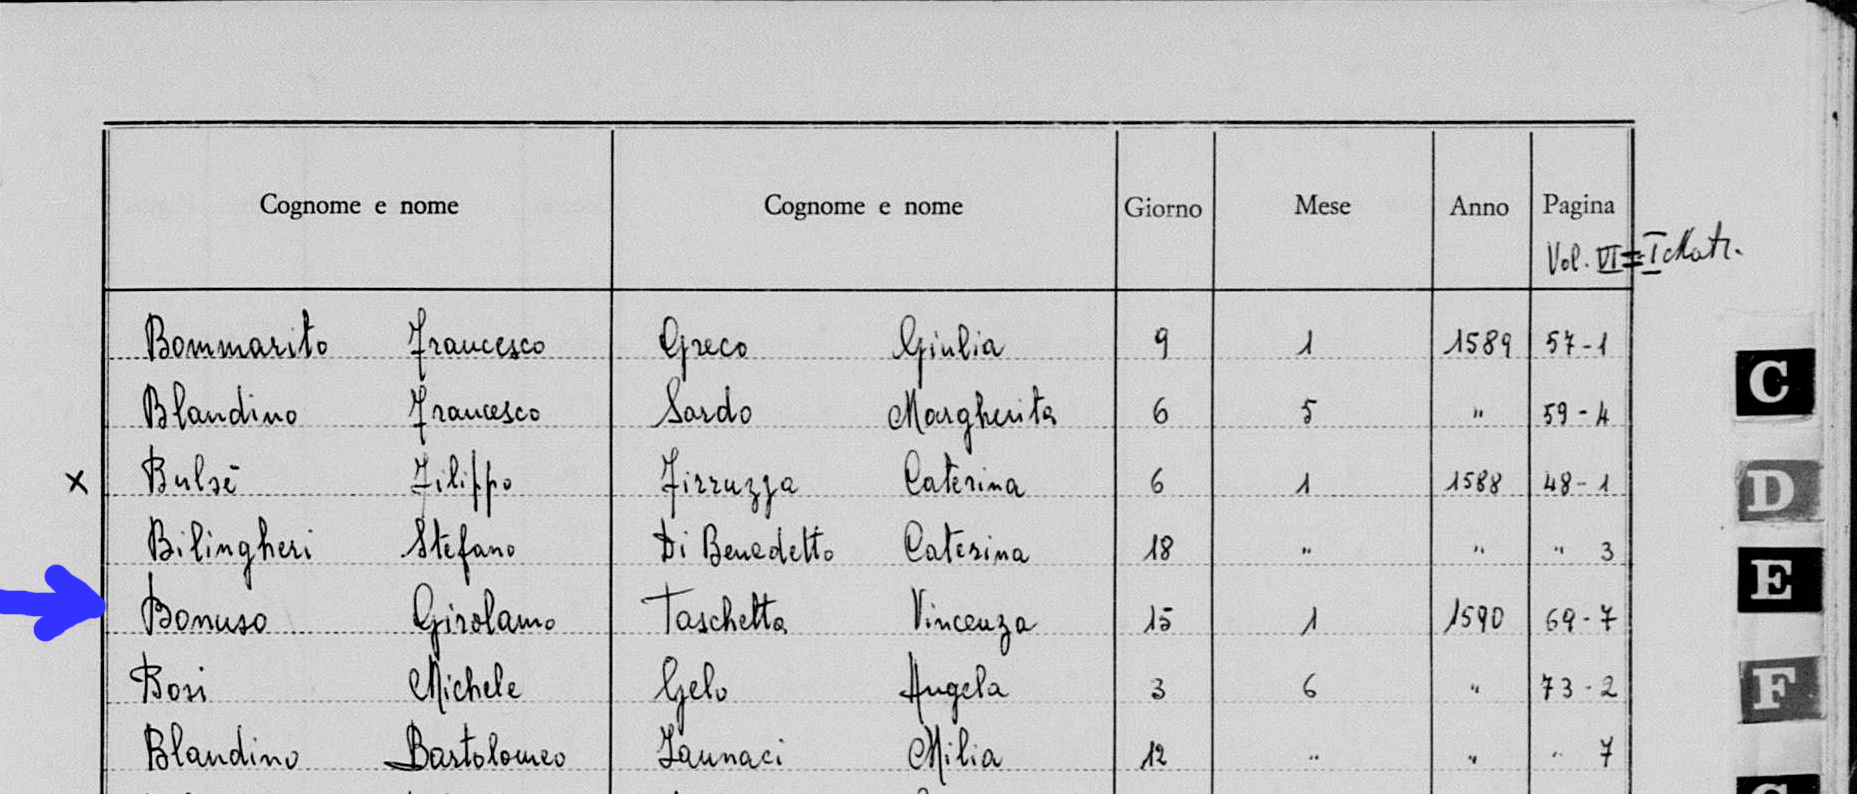 Cognome e nome Cognome e nome Giorno Mese Anno Pagina
Vol. VI = I Matr.
Bommarito Francesco Greco Giulia 9 1 1589 57-1
Blandino Francesco Sardo Margherita 6 5 " 59-4
x Bulsè Filippo Firruzza Caterina 6 1 1588 48-1
Bilingheri Stefano Di Benedetto Caterina 18 " " " 3
Bonuso Girolamo Taschetta Vincenza 15 1 1590 69-7
Bosi Michele Gelo Angela 3 6 " 73-2
Blandino Bartolomeo Iannaci Milia 12 " " " 7
C
D
E
F